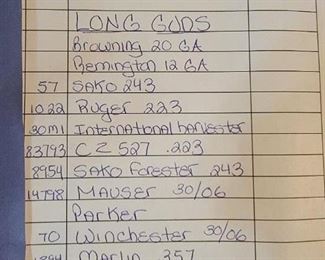 LONG GUNS
Browning 20 GA
Remington 12 GA
57 SAKO 243
1022 Ruger 223
30M1 International harvester
83793 CZ 527 .223
8954 SAKO Forester 243
14798 Mauser 30/06
Parker
70 Winchester 30/06
1894 Marlin 357